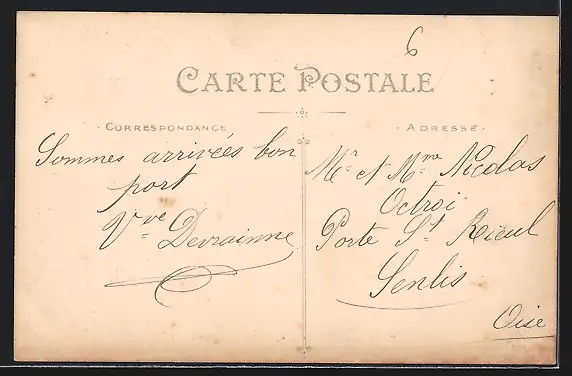 6
CARTE POSTALE
CORRESPONDANCE
ADRESSE
Sommes arrivées bon
port
Vve Devrainne
Mr et Mme Nicolas
Octroi
Porte St Rieul
Senlis
Oise